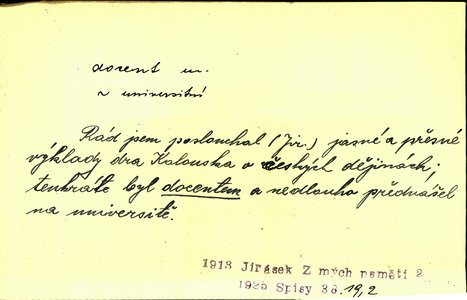 docent m.
~ universitní
Rád jsem poslouchal (Jir.) jasné a přesné
výklady dra Kalouska o českých dějinách;
tenkráte byl docentem a nedlouho přednášel
na universitě.
1913 Jirásek Z mých pamětí 2
1925 Spisy 38. 19,2